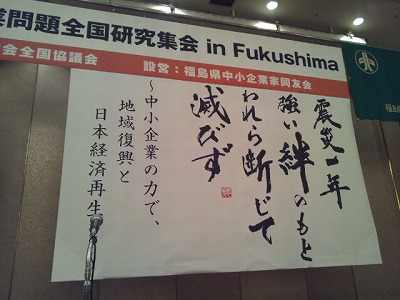 業問題全国研究集会 in Fukushima
会全国協議会
設営：福島県中小企業家同友会
震災一年
強い絆のもと
われら断じて
滅びず
～中小企業の力で、
地域復興と
日本経済再生
福島